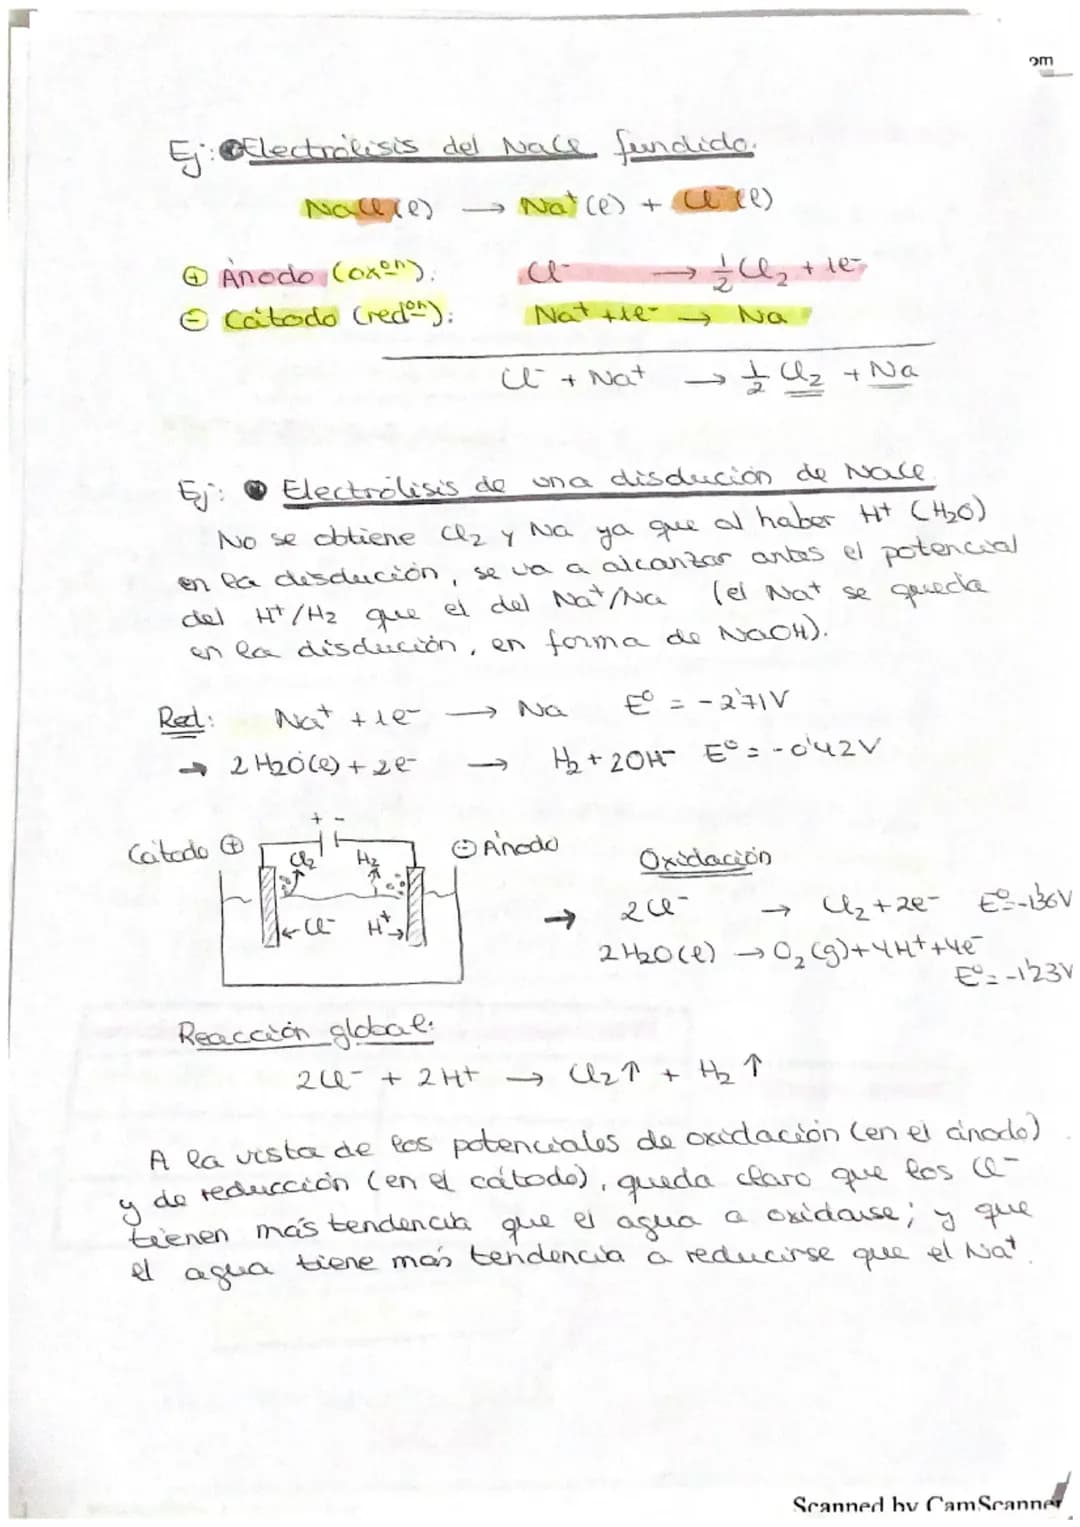 om
Ej: Electrólisis del NaCl fundido.
NaCl (l) → Na⁺ (l) + Cl⁻ (l)
⊕ Ánodo (oxᵒⁿ): Cl⁻ → 1/2 Cl₂ + 1e⁻
⊖ Cátodo (redᵒⁿ): Na⁺ + 1e⁻ → Na
Cl⁻ + Na⁺ → 1/2 Cl₂ + Na
Ej: Electrólisis de una disolución de NaCl.
No se obtiene Cl₂ y Na ya que al haber H⁺ (H₂O)
en la disolución, se va a alcanzar antes el potencial
del H⁺/H₂ que el del Na⁺/Na (el Na⁺ se queda
en la disolución, en forma de NaOH).
Red: Na⁺ + 1e⁻ → Na E⁰ = -2'71V
→ 2H₂O(l) + 2e⁻ → H₂ + 2OH⁻ E⁰ = -0'42V
+ -
Cátodo ⊕ Cl₂ H₂ ⊖ Ánodo
← Cl⁻ H⁺ →
Oxidación
→ 2Cl⁻ → Cl₂ + 2e⁻ E⁰=-1'36V
2H₂O(l) → O₂(g) + 4H⁺ + 4e⁻
E⁰= -1'23V
Reacción global:
2Cl⁻ + 2H⁺ → Cl₂↑ + H₂↑
A la vista de los potenciales de oxidación (en el ánodo)
y de reducción (en el cátodo), queda claro que los Cl⁻
tienen más tendencia que el agua a oxidarse; y que
el agua tiene más tendencia a reducirse que el Na⁺.
Scanned by CamScanner